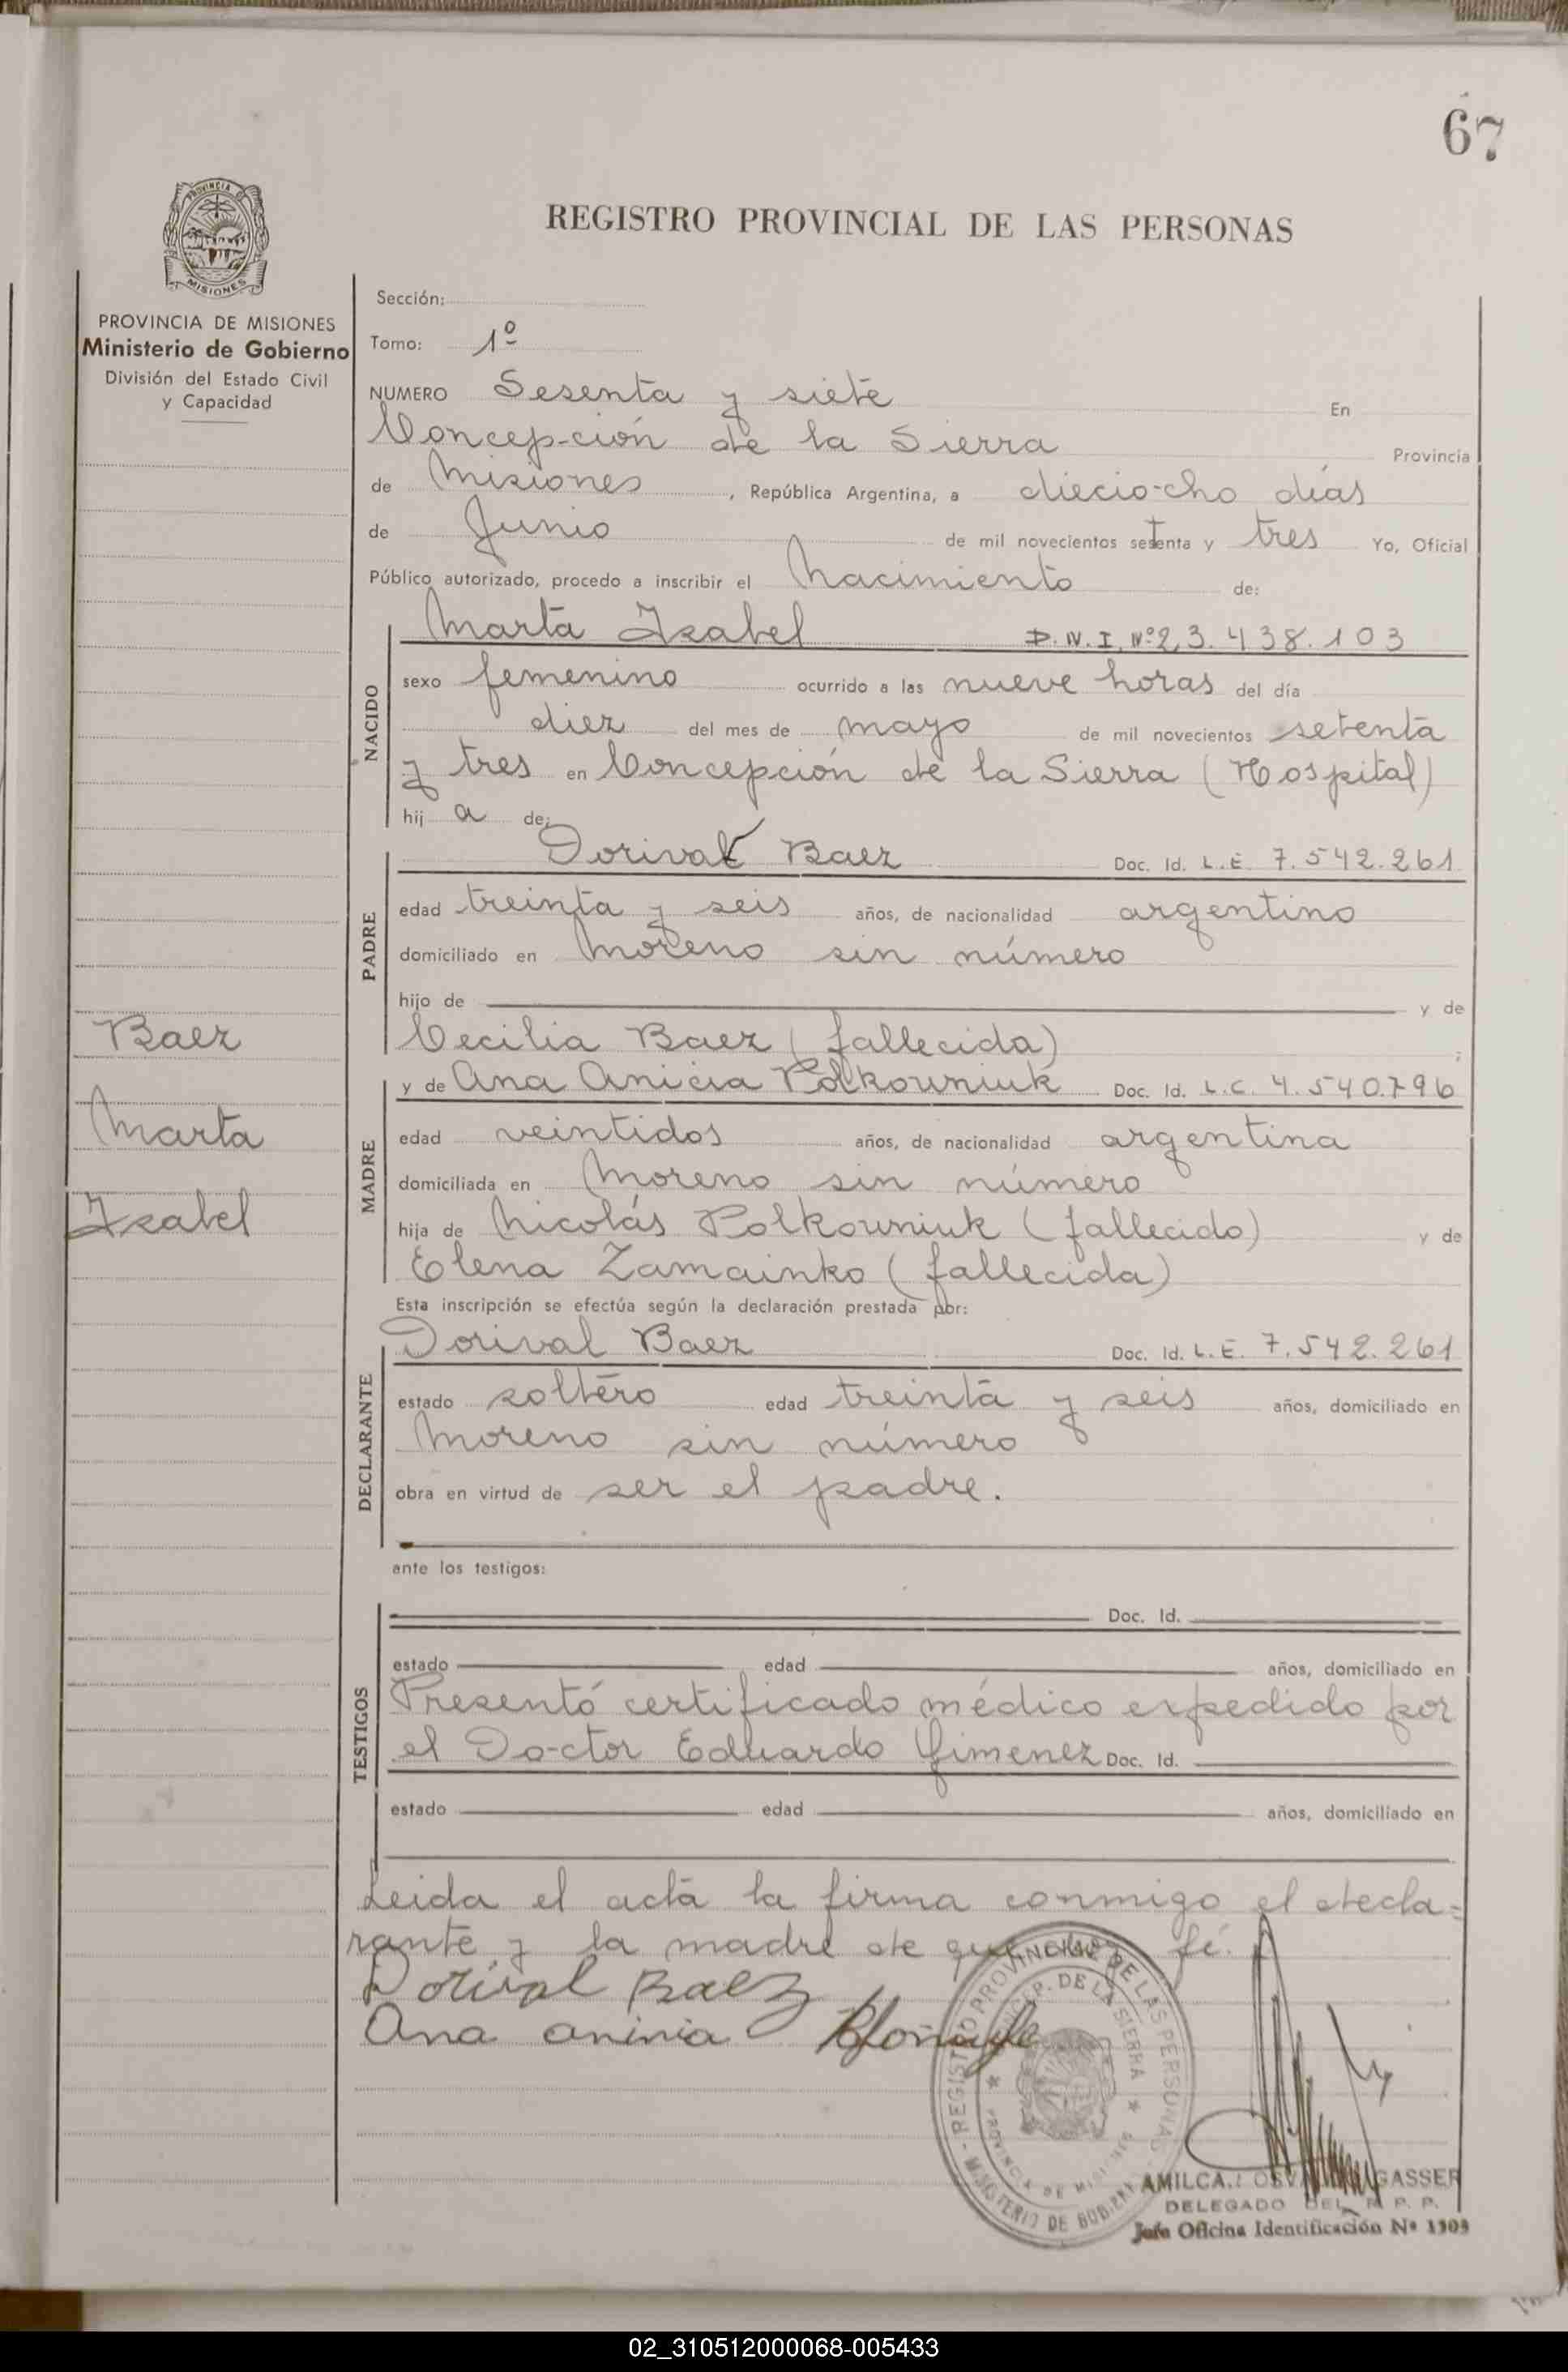 67
PROVINCIA DE
MISIONES
REGISTRO PROVINCIAL DE LAS PERSONAS
PROVINCIA DE MISIONES
Ministerio de Gobierno
División del Estado Civil
y Capacidad
Sección:
Tomo: 1º
NUMERO Sesenta y siete En
Concepción de la Sierra Provincia
de Misiones, República Argentina, a dieciocho días
de Junio de mil novecientos setenta y tres Yo, Oficial
Público autorizado, procedo a inscribir el Nacimiento de:
NACIDO
Marta Isabel D.N.I. Nº 23.438.103
sexo femenino ocurrido a las nueve horas del día
diez del mes de mayo de mil novecientos setenta
y tres en Concepción de la Sierra (Hospital)
hij a de:
PADRE
Dorival Baez Doc. Id. L.E. 7.542.261
edad treinta y seis años, de nacionalidad argentino
domiciliado en Moreno sin número
hijo de y de
Cecilia Baez (fallecida) ;
Baez
Marta
Isabel
MADRE
y de Ana Anicia Polkowniuk Doc. Id. L.C. 4.540.796
edad veintidos años, de nacionalidad argentina
domiciliada en Moreno sin número
hija de Nicolás Polkowniuk (fallecido) y de
Elena Zamainko (fallecida)
Esta inscripción se efectúa según la declaración prestada por:
DECLARANTE
Dorival Baez Doc. Id. L.E. 7.542.261
estado soltero edad treinta y seis años, domiciliado en
Moreno sin número
obra en virtud de ser el padre.
ante los testigos:
TESTIGOS
Doc. Id.
estado edad años, domiciliado en
Presentó certificado médico expedido por
el Doctor Eduardo Gimenez Doc. Id.
estado edad años, domiciliado en
Leida el acta la firma conmigo el decla=
rante y la madre de que doy fé.
Dorival Baez
Ana aninia
REGISTRO PROVINCIAL DE LAS PERSONAS
CONCEP. DE LA SIERRA
PROVINCIA DE MISIONES
MINISTERIO DE GOBIERNO
AMILCAR GASSER
DELEGADO DEL R. P. P.
Jefe Oficina Identificación Nº 1909
02_310512000068-005433